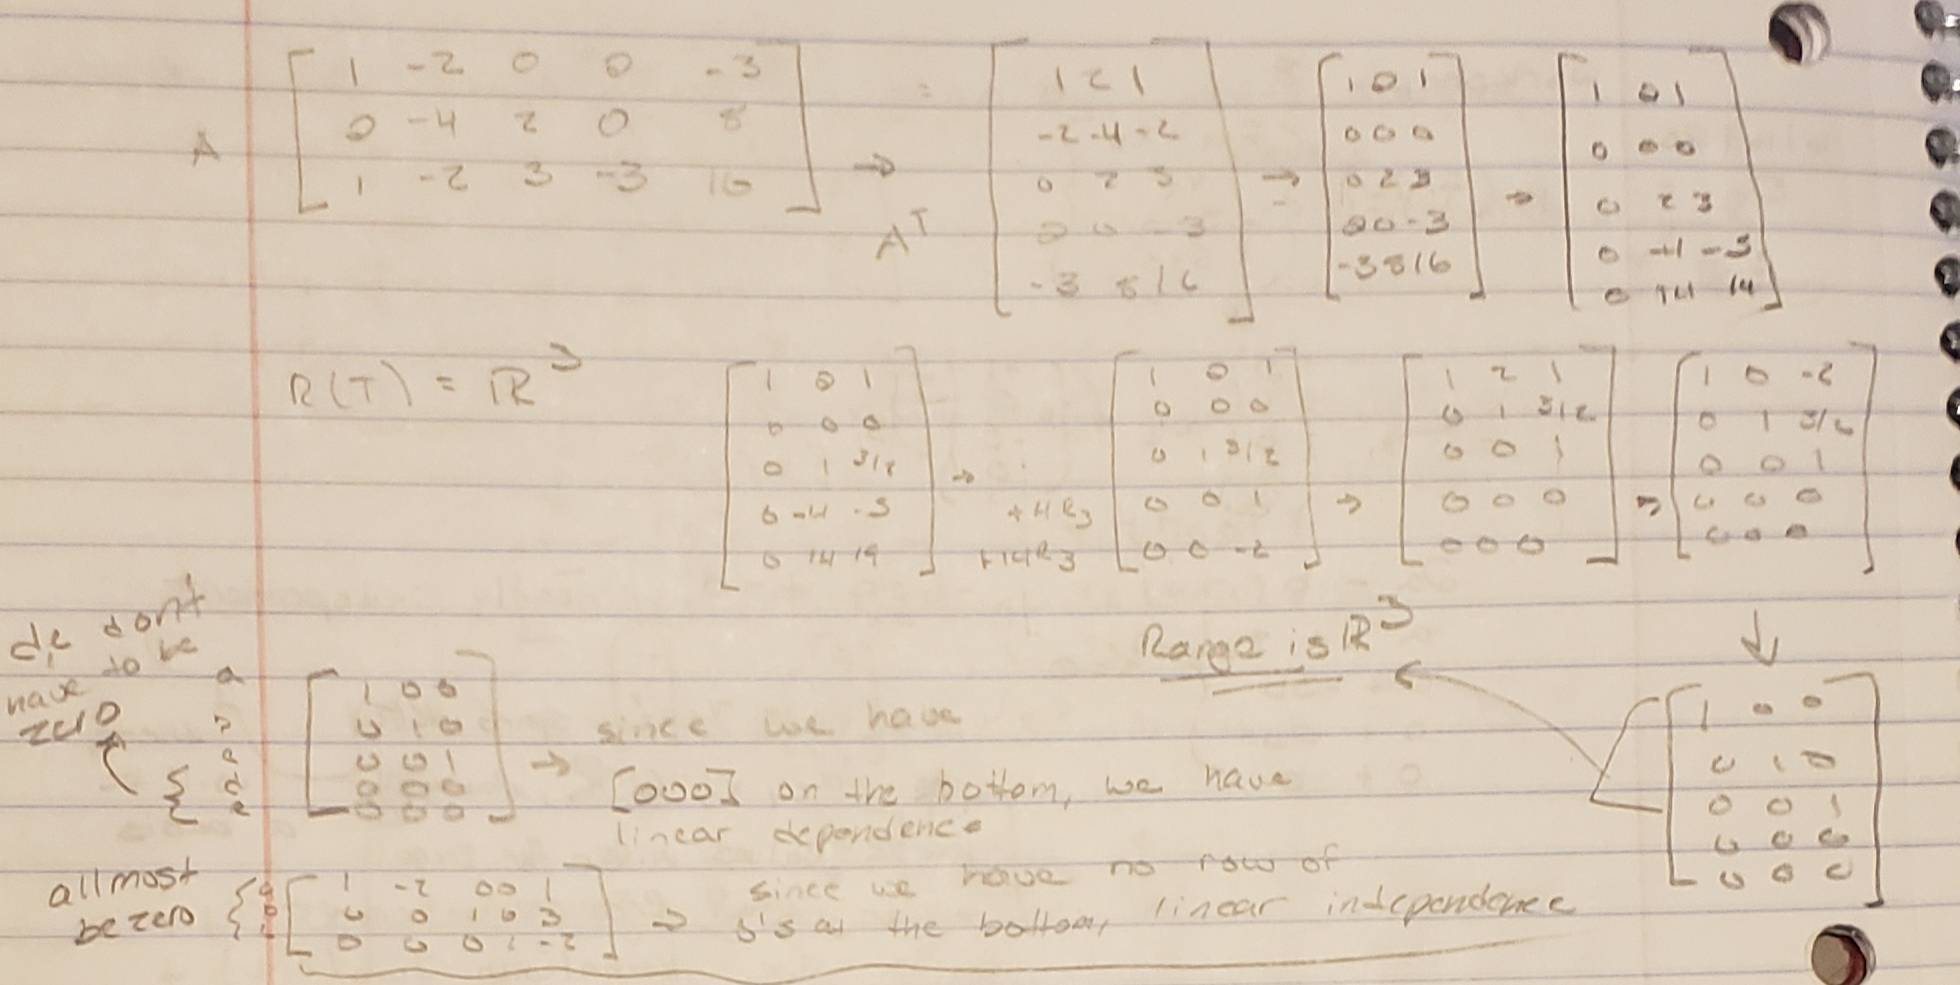 A [1 -2 0 0 -3
0 -4 2 0 8
1 -2 3 -3 16]
→ A^T [1 2 1
-2 -4 -2
0 2 3
0 0 -3
-3 8 16]
→ [1 0 1
0 0 0
0 2 3
0 0 -3
-3 8 16]
→ [1 0 1
0 0 0
0 2 3
0 -4 -3
0 14 14]
R(T) = ℝ^3
[1 0 1
0 0 0
0 1 3/2
0 -4 -3
0 14 19]
→ +4R3
+14R3
[1 0 1
0 0 0
0 1 3/2
0 0 1
0 0 -2]
→ [1 2 1
0 1 3/2
0 0 1
0 0 0
0 0 0]
→ [1 0 -2
0 1 3/2
0 0 1
0 0 0
0 0 0]
↓
[1 0 0
0 1 0
0 0 1
0 0 0
0 0 0]
Range is ℝ^3
d,e don't
have to be
zero
a [1 0 0
b 0 1 0
c 0 0 1
{ d 0 0 0
{ e 0 0 0]
→ since we have
[000] on the bottom, we have
linear dependence
all most
be zero
{ a [1 -2 0 0 1
b 0 0 1 0 3
c 0 0 0 1 -2]
→ since we have no row of
0's at the bottom, linear independence